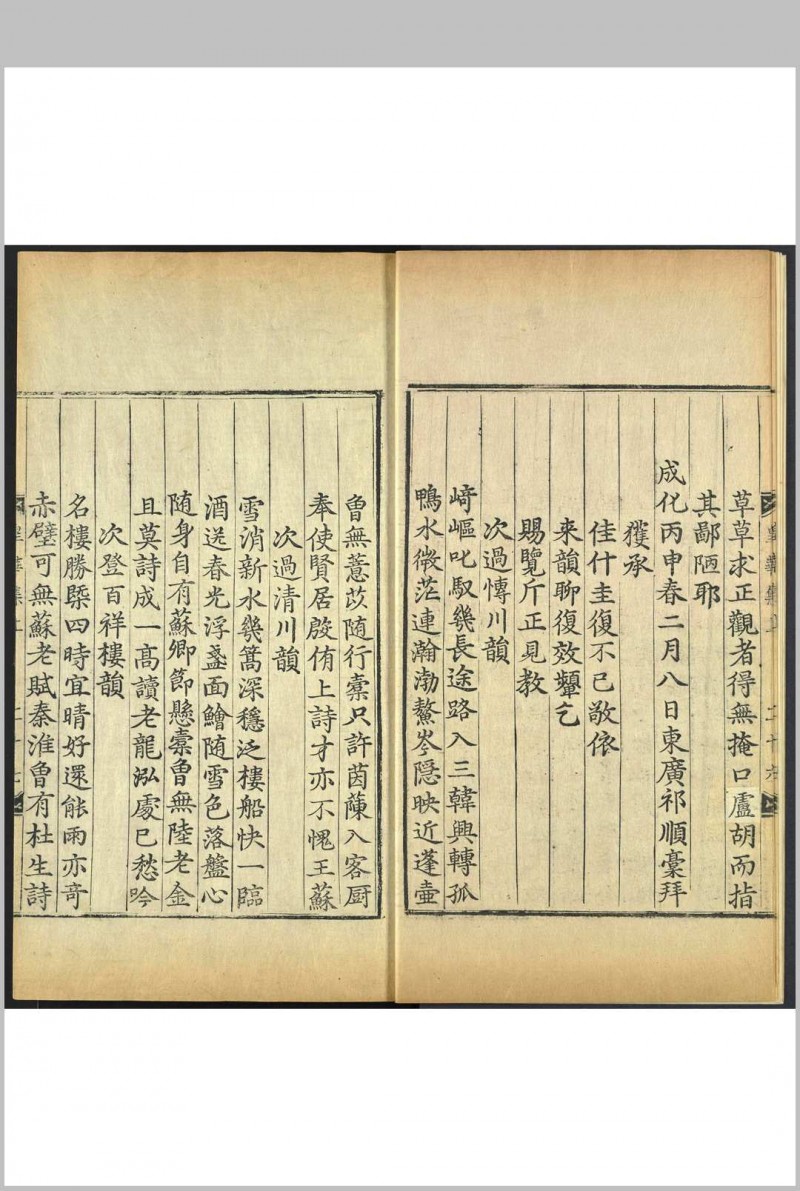 草草求正觀者得無掩口盧胡而指
其鄙陋耶
成化丙申春二月八日東廣祁順稾拜
獲承
佳什圭復不已敬依
来韻聊復效顰乞
賜覽斤正見教
次過慱川韻
﨑嶇叱馭幾長途路入三韓興轉孤
鴨水微茫連瀚渤鰲岑隱映近蓬壷
曾無薏苡随行槖只許茵蔯入客厨
奉使賢居殷侑上詩才亦不愧王蘇
次過清川韻
雪消新水幾篙深穩泛樓船快一臨
酒送春光浮盞面鱠随雪色落盤心
随身自有蘇卿節懸槖曾無陸老金
且莫詩成一髙讀老龍泓處已愁吟
次登百祥樓韻
名樓勝槩四時宜晴好還能雨亦竒
赤壁可無蘇老賦秦淮曾有杜生詩